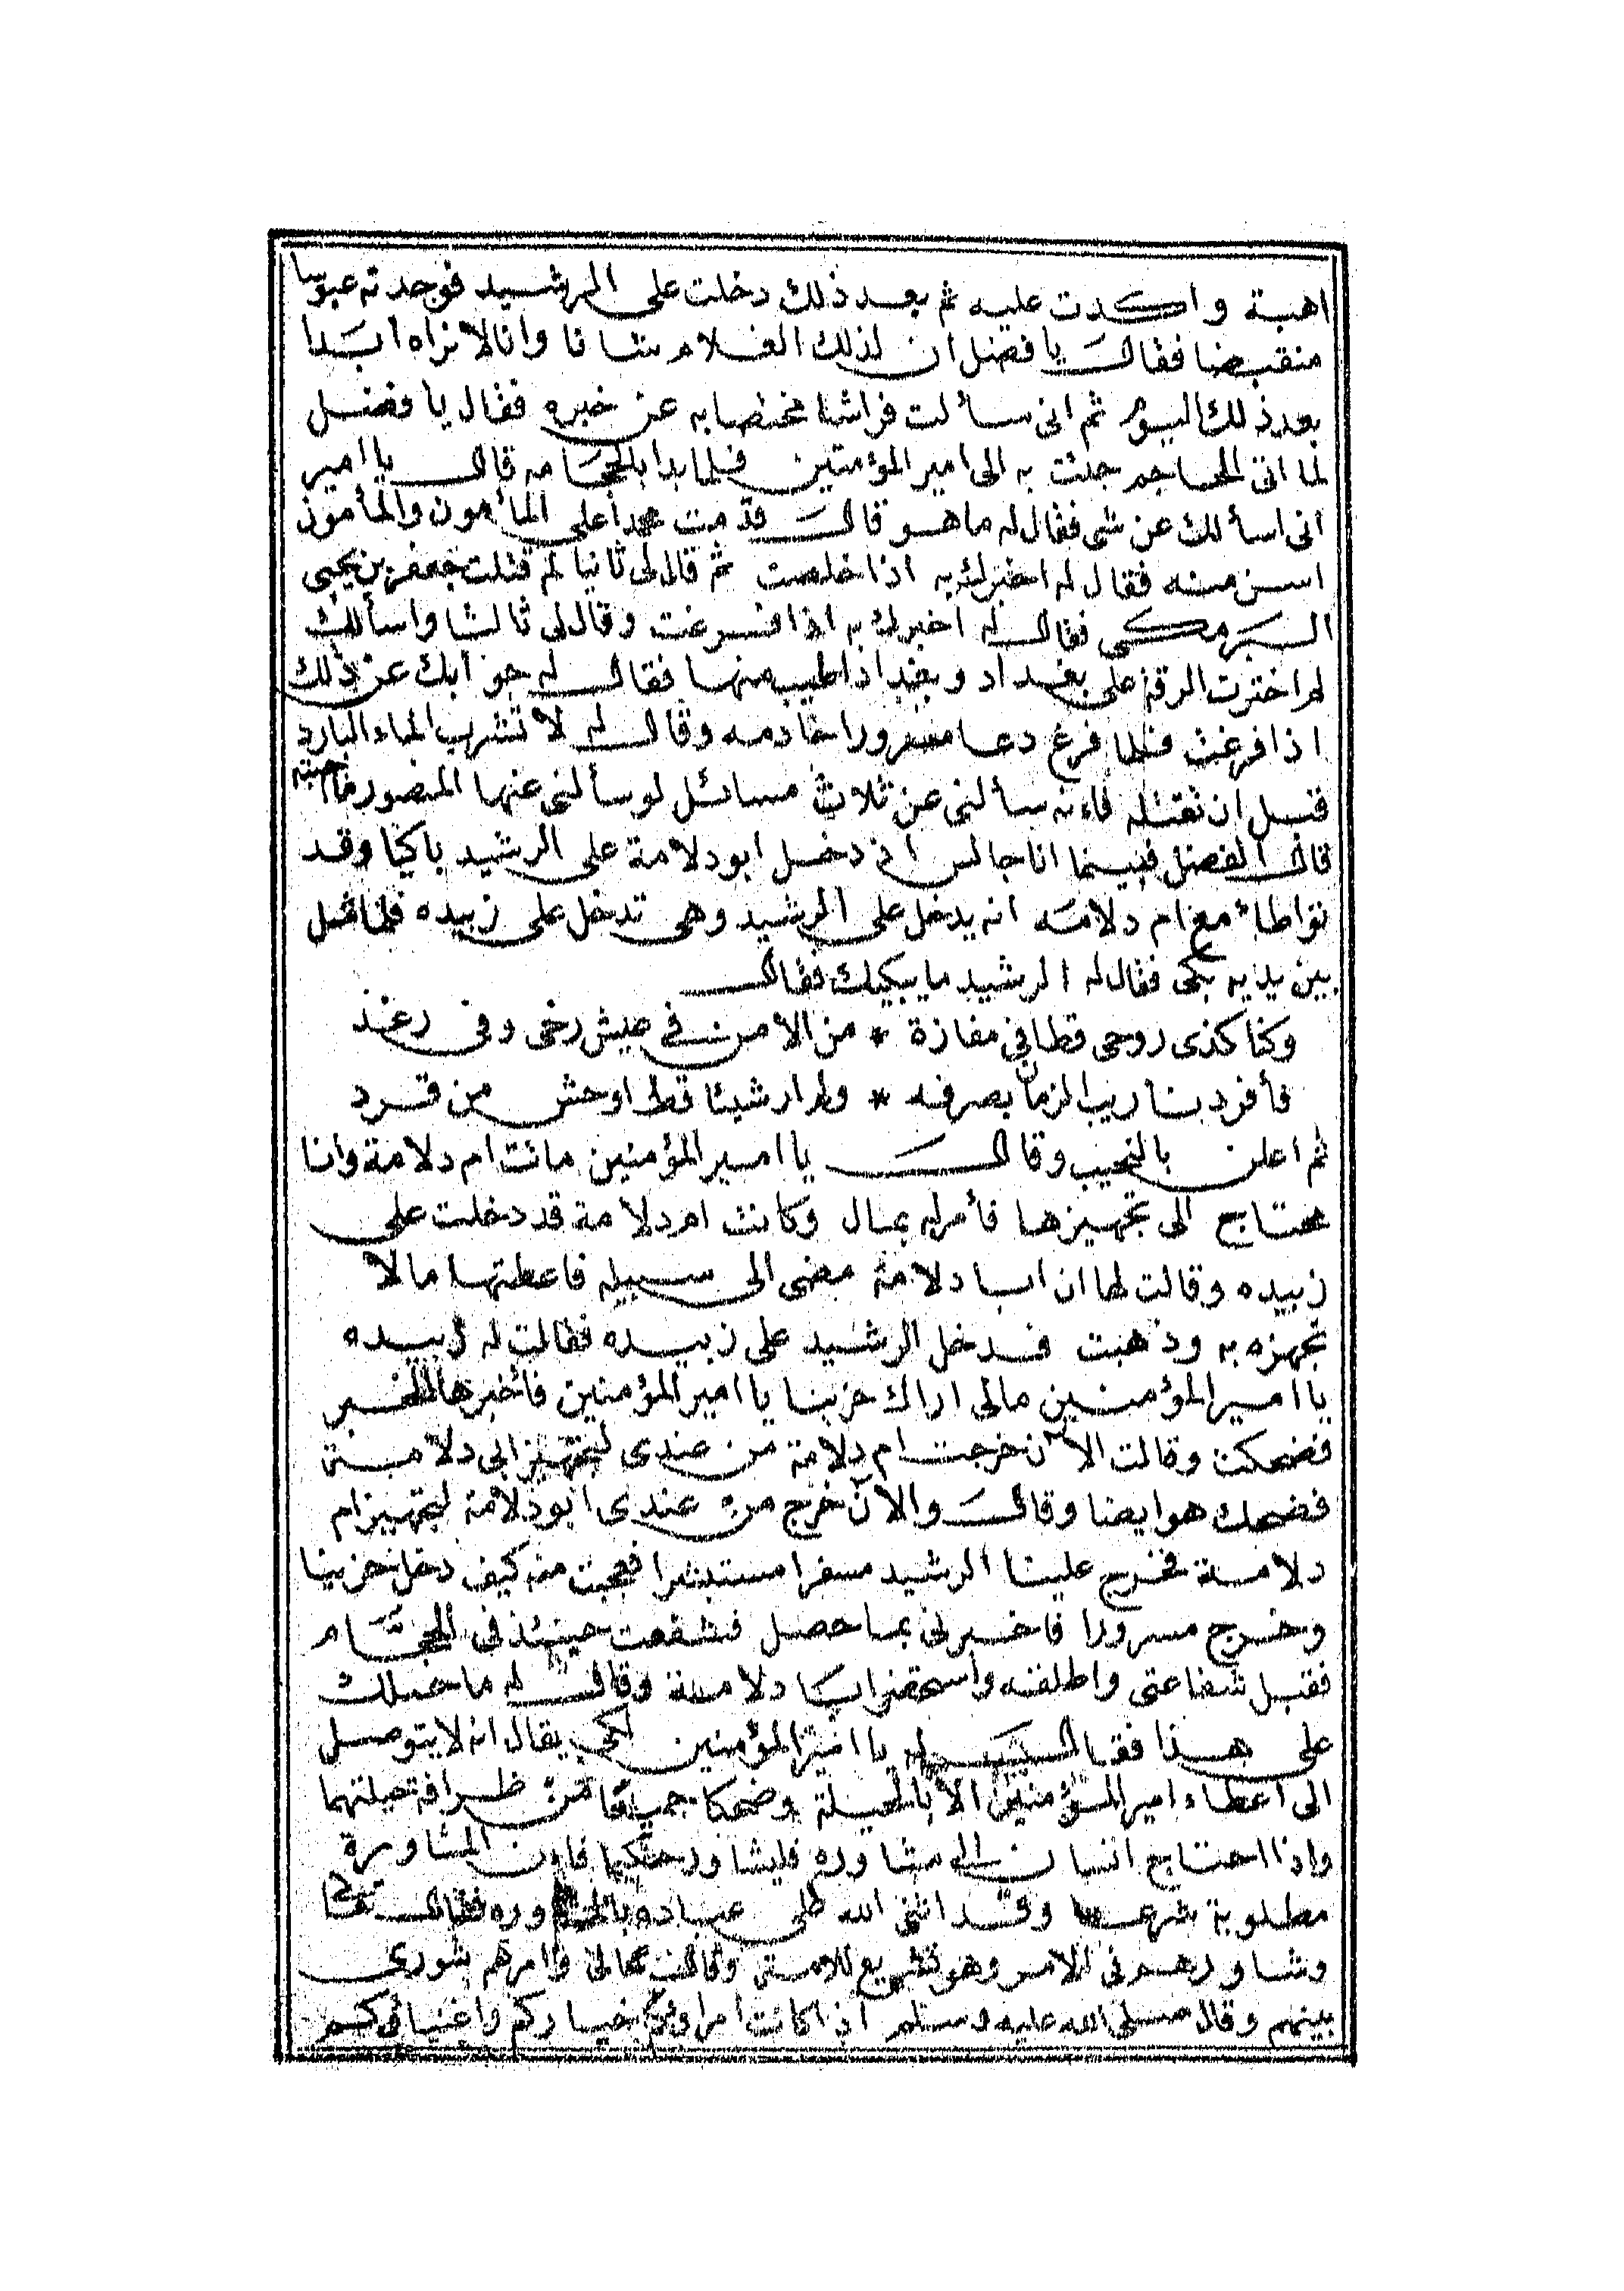 اهبة واكدت عليه ثم بعد ذلك دخلت على الرشيد فوجدته عبوسا
منقبضا فقال يا فضل ان لذلك الغلام شانا وانا لا نراه ابدا
بعد ذلك اليوم ثم انى سألت فراشا مختصا به عن خبره فقال يا فضل
لما اتى الحاجم جئت به الى امير المؤمنين فلما بدا بالحجامه قال يا امير
انى اسألك عن شى فقال له ما هو قال قدمت محمدا على المأمون والمأمون
اسن منه فقال له اخبرك به اذا خلصت ثم قال لى ثانيا لم قتلت جعفر بن يحيى
البرمكى فقال له اخبرك به اذا فرغت وقال لى ثالثا واسألك
لم اخترت الرقة على بغداد وبغداد اطيب منها فقال له جوابك عن ذلك
اذا فرغت فلما فرغ دعا مسرورا خادمه وقال له لا تشرب الماء البارد
قبل ان تقتله فانه سألنى عن ثلاث مسائل لو سألنى عنها المنصور ما اجبته
قال الفضل فبينما انا جالس اذ دخل ابو دلامة على الرشيد باكيا وقد
تواطأ مع ام دلامه انه يدخل على الرشيد وهى تدخل على زبيده فلما مثل
بين يديه بكى فقال له الرشيد ما يبكيك فقال
وكنا كذى روحى قطا فى مفازة * من الامن فى عيش رخى وفى رغد
فأفردنا ريب الزمان بصرفه * ولم ار شيئا قط اوحش من قرد
ثم أعلن بالنحيب وقال يا امير المؤمنين ماتت ام دلامة وانا
محتاج الى تجهيزها فأمر له بمال وكانت ام دلامة قد دخلت على
زبيده وقالت لها ان ابا دلامة مضى الى سبيله فاعطتها مالا
تجهزه به وذهبت فدخل الرشيد على زبيده فقالت له زبيده
يا امير المؤمنين مالى اراك حزينا يا امير المؤمنين فأخبرها الخبر
فضحكت وقالت الآن خرجت ام دلامة من عندى لتجهيز ابى دلامة
فضحك هو ايضا وقال والآن خرج من عندى ابو دلامة لتجهيز ام
دلامة فخرج علينا الرشيد مسفرا مستبشرا فعجبت منه كيف دخل حزينا
وخرج مسرورا فاخبرنى بما حصل فشفعت حينئذ فى الحجام
فقبل شفاعتى واطلقه واستحضر ابا دلامة وقال له ما حملك
على هذا فقال له يا امير المؤمنين لكى يقال انه لا يتوصل
الى اعطاء امير المؤمنين الا بالحيلة وضحكا جميعا من ظرافة حيلتهما
واذا احتاج انسان الى مشاوره فليشاور حكيما فان المشاورة
مطلوبة شرعا وقد اثنى الله على عباده بالمشاوره فقال تعالى
وشاورهم فى الامر وهو تشريع للامة وقال تعالى وامرهم شورى
بينهم وقال صلى الله عليه وسلم اذا كانت امراؤكم خياركم واغنياؤكم